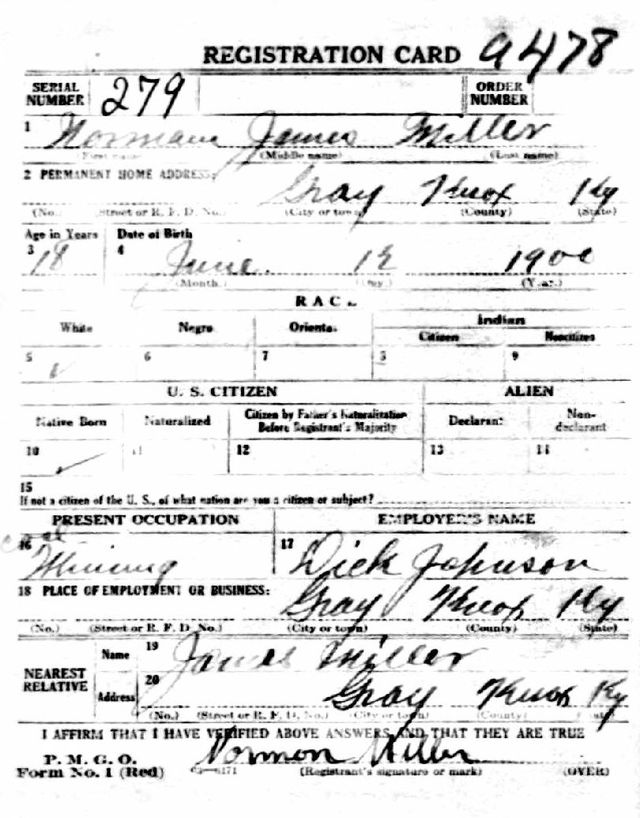 REGISTRATION CARD a478
SERIAL NUMBER 279 ORDER NUMBER
1 Norman James Miller
(First name) (Middle name) (Last name)
2 PERMANENT HOME ADDRESS: Gray Knox Ky
(No.) (Street or R. F. D. No.) (City or town) (County) (State)
Age in Years Date of Birth
3 18 4 June 1900
(Month.) (Day.) (Year.)
RACE
White Negro Oriental Indian
Citizen Noncitizen
5 6 7 8 9
U. S. CITIZEN ALIEN
Native Born Naturalized Citizen by Father's Naturalization Before Registrant's Majority Declarant Non-declarant
10 ✓ 11 12 13 14
15
If not a citizen of the U. S., of what nation are you a citizen or subject?
PRESENT OCCUPATION EMPLOYER'S NAME
16 coal Mining 17 Dick Johnson
18 PLACE OF EMPLOYMENT OR BUSINESS: Gray Knox Ky
(No.) (Street or R. F. D. No.) (City or town) (County) (State)
NEAREST RELATIVE Name 19 James Miller
Address 20 Gray Knox Ky
(No.) (Street or R. F. D. No.) (City or town) (County) (State)
I AFFIRM THAT I HAVE VERIFIED ABOVE ANSWERS AND THAT THEY ARE TRUE
P. M. G. O. Normon Miller
Form No. 1 (Red) (Registrant's signature or mark) (OVER)